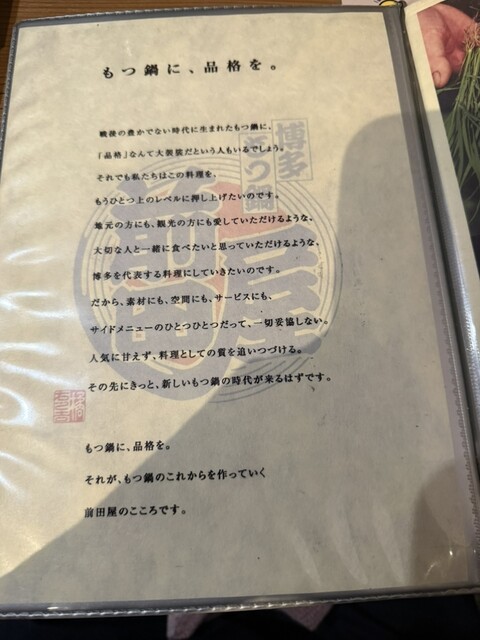 もつ鍋に、品格を。
戦後の豊かでない時代に生まれたもつ鍋に、
「品格」なんて大袈裟だという人もいるでしょう。
それでも私たちはこの料理を、
もうひとつ上のレベルに押し上げたいのです。
地元の方にも、観光の方にも愛していただけるような、
大切な人と一緒に食べたいと思っていただけるような、
博多を代表する料理にしていきたいのです。
だから、素材にも、空間にも、サービスにも、
サイドメニューのひとつひとつだって、一切妥協しない。
人気に甘えず、料理としての質を追いつづける。
その先にきっと、新しいもつ鍋の時代が来るはずです。
もつ鍋に、品格を。
それが、もつ鍋のこれからを作っていく
前田屋のこころです。
博多
もつ鍋
前田屋